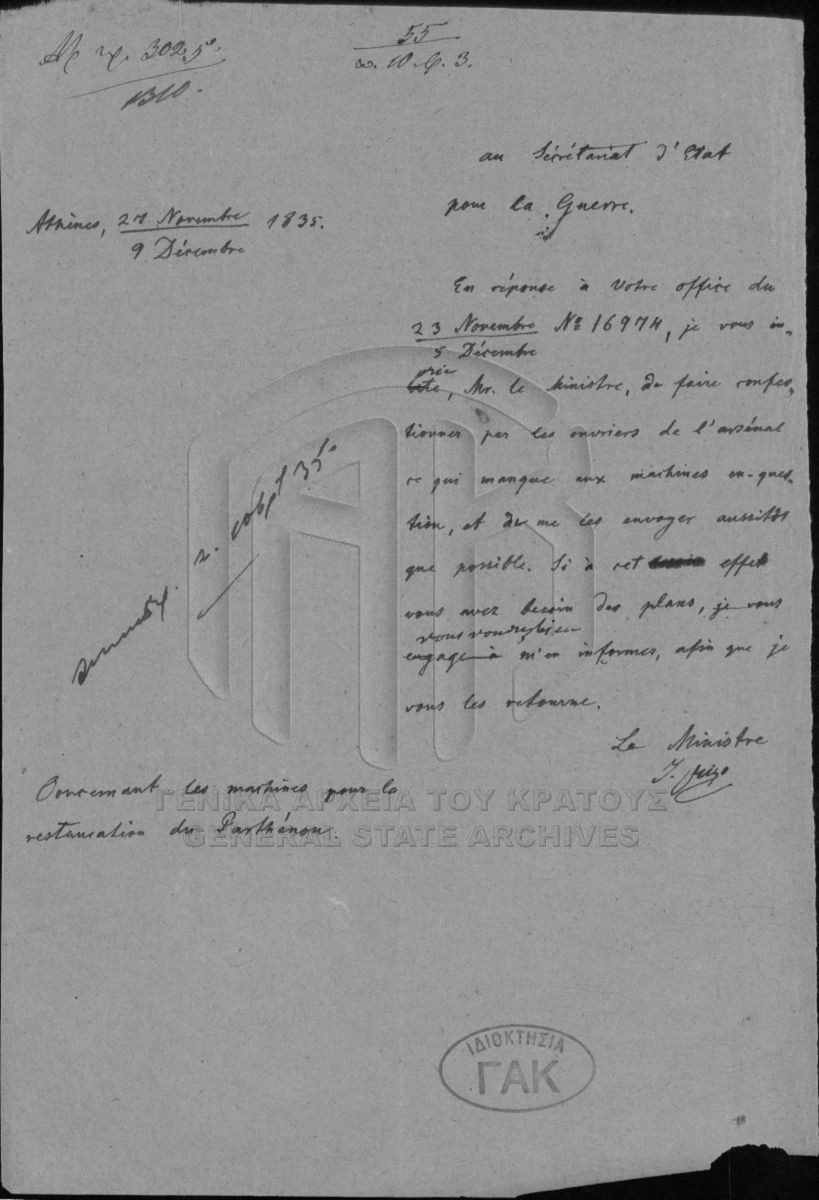 302,5
1310.
55
au Sécrétariat d'Etat
pour la Guerre.
Athènes, 27 Novembre 1835.
9 Décembre
En réponse à Votre office du
23 Novembre № 16974, je vous in-
5 Décembre
prie
vite, Mr. le Ministre, de faire confec-
tionner par les ouvriers de l'arsénal
ce qui manque aux machines en-ques-
tion, et de me les envoyer aussitôt
que possible. Si à cet effet
vous avez besoin des plans, je vous
vous voudrez bien
engage à m'en informer, afin que je
vous les retourne.
Le Ministre
Concernant les machines pour la
restauration du Parthénon.
ΓΕΝΙΚΑ ΑΡΧΕΙΑ ΤΟΥ ΚΡΑΤΟΥΣ
GENERAL STATE ARCHIVES
ΙΔΙΟΚΤΗΣΙΑ
ΓΑΚ